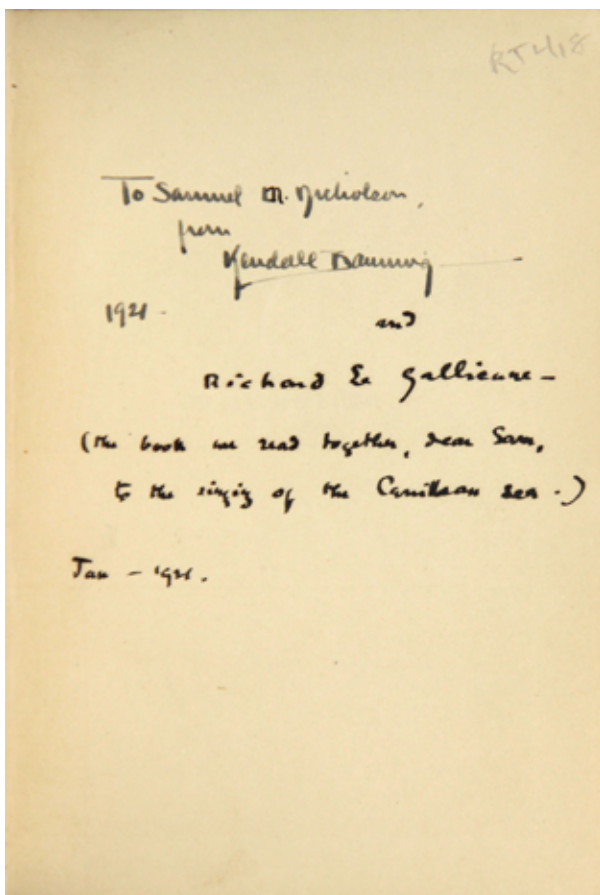 To Samuel M. Nicholson,
from
Kendall Banning
1921.
and
Richard Le Gallienne -
(the book we read together, dear Sam,
to the singing of the Carribean sea.)
Jan - 1921.